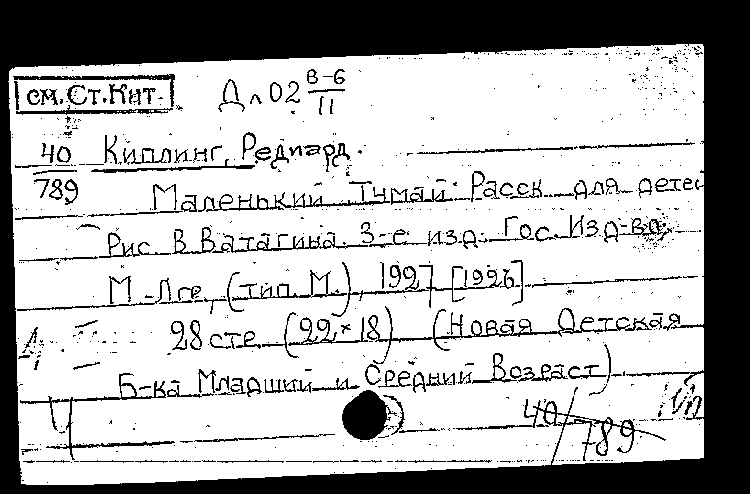 см. Ст. Кит.
Дл 02 В-6/11
40/789 Киплинг, Редиард.
Маленький Тумай. Расск. для детей
Рис. В. Ватагина. 3-е изд. Гос. Изд-во,
М.-Лгр., (тип. М.), 1927 [1926].
28 стр. (22×18) (Новая Детская
Б-ка Младший и Средний Возраст).
40/789